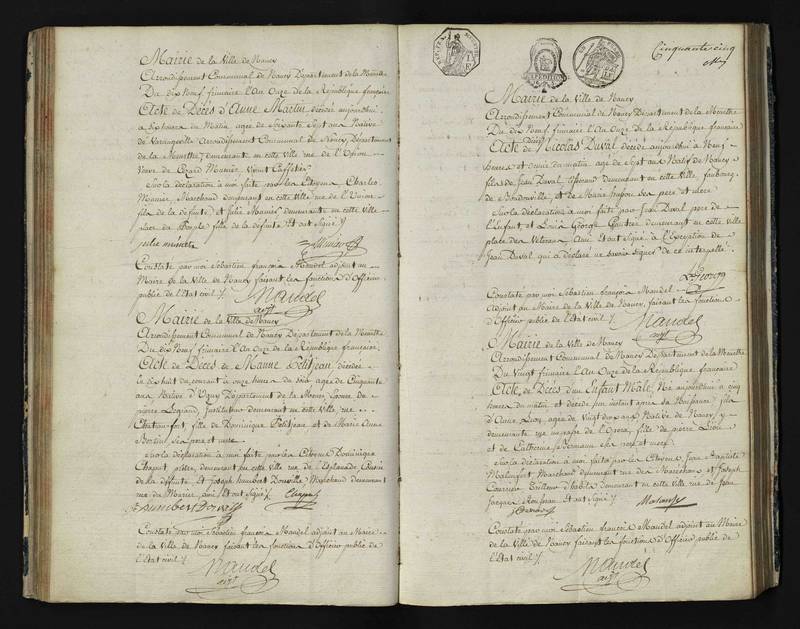 Mairie de la Ville de Nancy
Arrondissement Communal de Nancy Département de la Meurthe
Du dix Neuf frimaire l'An Onze de la République française
Acte de Décès d'Anne Martin décédée aujourd'hui
à sept heures du Matin agée de Soixante Sept ans Native
de Varangeville Arrondissement Communal de Nancy, Département
de la Meurthe, demeurante en cette ville rue de l'Union
Veuve de Cezard Mounier, Vivant Caffetier
Sur la déclaration à moi faite par les Citoyens Charles
Munier, Marchand demeurant en cette ville rue de l'Union
fils de la défunte et Julie Munier demeurante en cette ville
place du Peuple fille de la défunte Et ont Signé
julie munier
Constaté par moi Sébastien françois Mandel adjoint au
Maire de la Ville de Nancy faisant les fonctions d'Officier
public de l'Etat civil
Mandel
adjt
Mairie de la Ville de Nancy
Arrondissement Communal de Nancy Département de la Meurthe
Du dix Neuf frimaire l'An Onze de la République française
Acte de Décès de Manne Petitjean décédée
le dix huit du courant à onze heures du Soir agée de Cinquante
ans Native d' Département de la Epouse de
pierre Legrand, Instituteur demeurant en cette ville rue
Chateaufort, fille de Dominique Petitjean et de Marie Anne
Ses père et mère
Sur la déclaration à moi faite par les Citoyens Dominique
Chapat prêtre, demeurant en cette ville rue de l'Esplanade, Cousin
de la défunte Et Joseph humbert Douville Marchand demeurant
rue de ont Signé
humbert Dorville
Constaté par moi Sébastien françois Mandel adjoint au Maire
de la Ville de Nancy faisant les fonctions d'Officier public de
l'Etat civil
Mandel
adjt
Cinquante cinq
Mairie de la Ville de Nancy
Arrondissement Communal de Nancy Département de la Meurthe
Du dix Neuf frimaire l'An Onze de la République française
Acte de Nicolas Duval décédé aujourd'hui à Neuf
heures et demie du matin agé de Sept ans Natif de Nancy
fils de Jean Duval, demeurant en cette Ville, faubourg
de Boudonville, et de Marie Ses père et mère
Sur la déclaration à moi faite par Jean Duval père de
l'Enfant et Louis George demeurant en cette ville
place des Et ont Signé à l'Exception de
Jean Duval, qui a déclaré ne savoir signer de ce interpellé
L George
Constaté par moi Sébastien françois Mandel
Adjoint au Maire de la Ville de Nancy, faisant les fonctions
d'Officier public de l'Etat civil
Mandel
adjt
Mairie de la Ville de Nancy
Arrondissement Communal de Nancy Département de la Meurthe
Du Vingt frimaire l'An Onze de la République française
Acte de Décès d'un Enfant Male, Né aujourd'hui à cinq
heures du matin et décédé un instant après sa Naissance, fils
d'Anne Lion, agée de Vingt deux ans Native de Nancy, y
demeurante rue de l'Opera, fille de pierre Lion
et de Catherine ses père et mère
Sur la déclaration à moi faite par les Citoyens Jean Baptiste
Malingst, Marchand demeurant rue des Maréchaux et Joseph
Tailleur d'habits demeurant en cette ville rue de Jean
Jacques Rousseau Et ont Signé
Constaté par moi Sébastien françois Mandel adjoint au Maire
de la Ville de Nancy faisant les fonctions d'Officier public de
l'Etat civil
Mandel
adjt